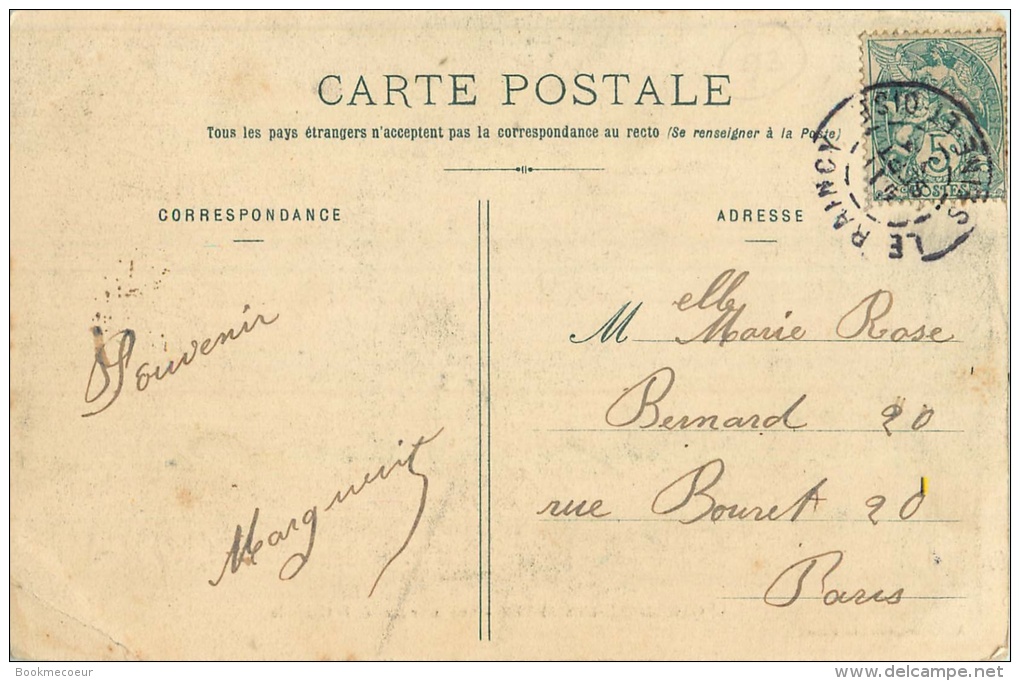 CARTE POSTALE
Tous les pays étrangers n'acceptent pas la correspondance au recto (Se renseigner à la Poste)
CORRESPONDANCE
Souvenir
Marguerit
ADRESSE
Melle Marie Rose
Bernard 20
rue Bouret 20
Paris
LE RAINCY
SEINE ET OISE
5c POSTES
Bookmecoeur
www.delcampe.net